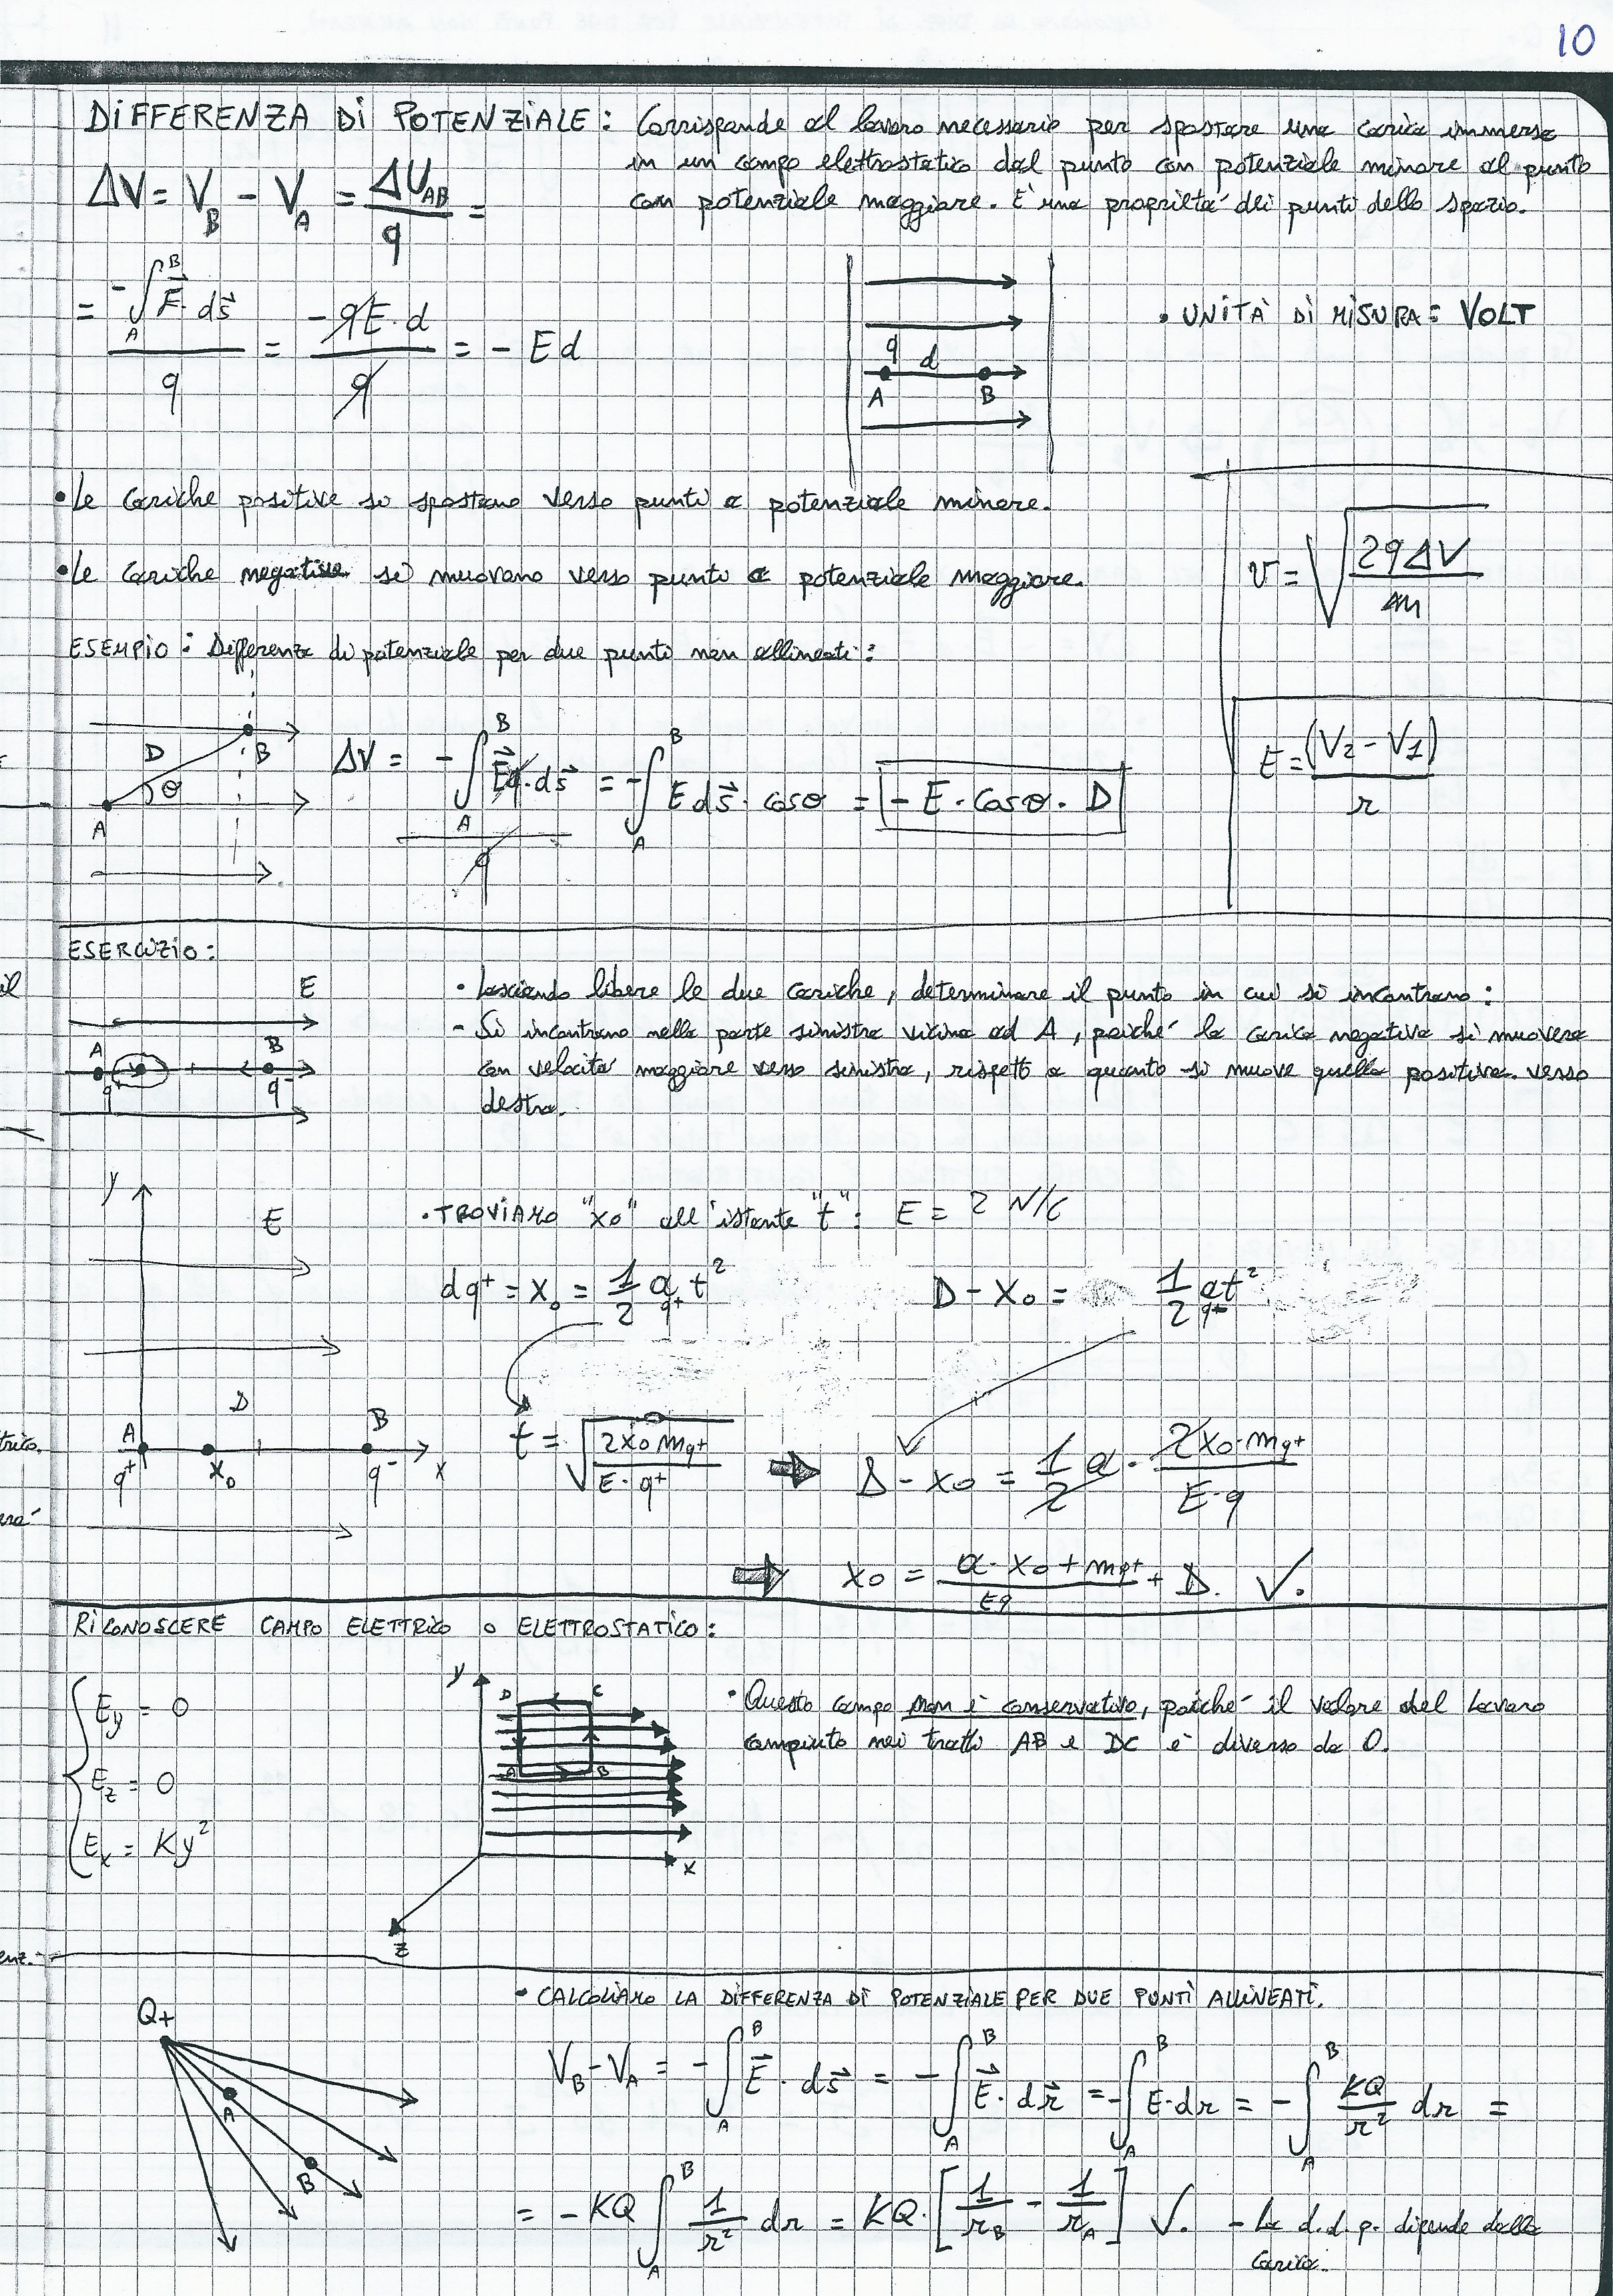 10
DIFFERENZA DI POTENZIALE: Corrisponde al lavoro necessario per spostare una carica immersa
in un campo elettrostatico dal punto con potenziale minore al punto
con potenziale maggiore. È una proprietà dei punti dello spazio.
ΔV = V_B - V_A = ΔU_AB / q =
= -∫_A^B F⃗ · ds⃗ / q = -qE·d / q = - Ed
q d
A B
• UNITÀ DI MISURA: VOLT
• Le cariche positive si spostano verso punti a potenziale minore.
• Le cariche negative si muovono verso punti a potenziale maggiore.
v = √(2qΔV / m)
ESEMPIO: Differenza di potenziale per due punti non allineati:
D B
θ
A
ΔV = -∫_A^B E⃗q·ds⃗ / q = -∫_A^B E ds⃗ · cosθ = - E · cosθ · D
E = (V2 - V1) / r
ESERCIZIO:
E
A B
q+ q-
• Lasciando libere le due cariche, determinare il punto in cui si incontrano:
- Si incontrano nella parte sinistra vicino ad A, poiché la carica negativa si muoverà
con velocità maggiore verso sinistra, rispetto a quanto si muove quella positiva verso
destra.
y
E
• TROVIAMO "x0" all'istante "t": E = 2 N/C
dq+ = x0 = 1/2 a_q+ t²
D - x0 = 1/2 a_q+ t²
D
A B
q+ x0 q- x
t = √(2x0 mq+ / E·q+) ⇒ D - x0 = 1/2 a · 2x0·mq+ / E·q
⇒ x0 = a·x0 + mq+ / Eq + D. √.
RICONOSCERE CAMPO ELETTRICO O ELETTROSTATICO:
Ey = 0
Ez = 0
Ex = Ky²
y
D C
A B
x
z
• Questo campo non è conservativo, poiché il valore del lavoro
compiuto nei tratti AB e DC è diverso da 0.
• CALCOLIAMO LA DIFFERENZA DI POTENZIALE PER DUE PUNTI ALLINEATI.
Q+
A
B
V_B - V_A = -∫_A^B E⃗ · ds⃗ = -∫_A^B E⃗ · dr⃗ = -∫_A^B E·dr = -∫_A^B KQ/r² dr =
= -KQ ∫_A^B 1/r² dr = KQ·[1/r_B - 1/r_A] √. - La d.d.p. dipende dalla
carica.